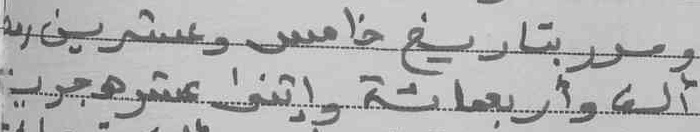 وحرر بتاريخ خامس وعشرين
ألف وأربعمائة وإثنى عشر هجرية